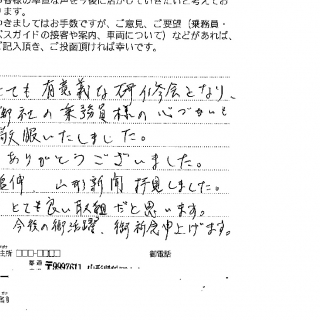 客様の率直な声を今後に活かしていきたいと考えてお
ります。
つきましてはお手数ですが、ご意見、ご要望（乗務員・
バスガイドの接客や案内、車両について）などがあれば、
ご記入頂き、ご投函頂ければ幸いです。
とても有意義な研修会となり、
御社の乗務員様の心づかいも
敬服いたしました。
ありがとうございました。
追伸、山形新聞拝見しました。
とても良い取組だと思います。
今後の御活躍、御祈念申上げます。
住所 御電話
〒9997611